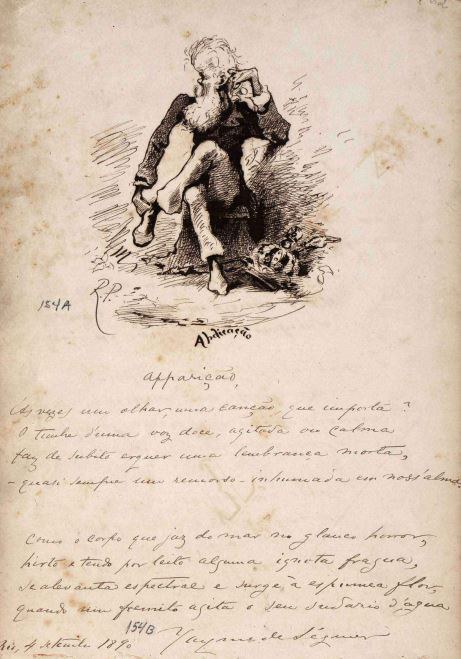 R.P.
154A
Abdicação
Apparição
Ás vezes um olhar, uma canção, que importa?
O timbre d'uma voz doce, agitada ou calma
faz de subito erguer uma lembrança morta,
- quasi sempre um remorso - inhumada em noss'alma.
Como o corpo que jaz do mar no glauco horror,
hirto e tendo por leito alguma ignota fragua,
se alevanta espectral e surge á espumea flor,
quando um fremito agita o seu sudario d'agua
154B
Rio, 4 setembro 1890
Jayme de Séguier